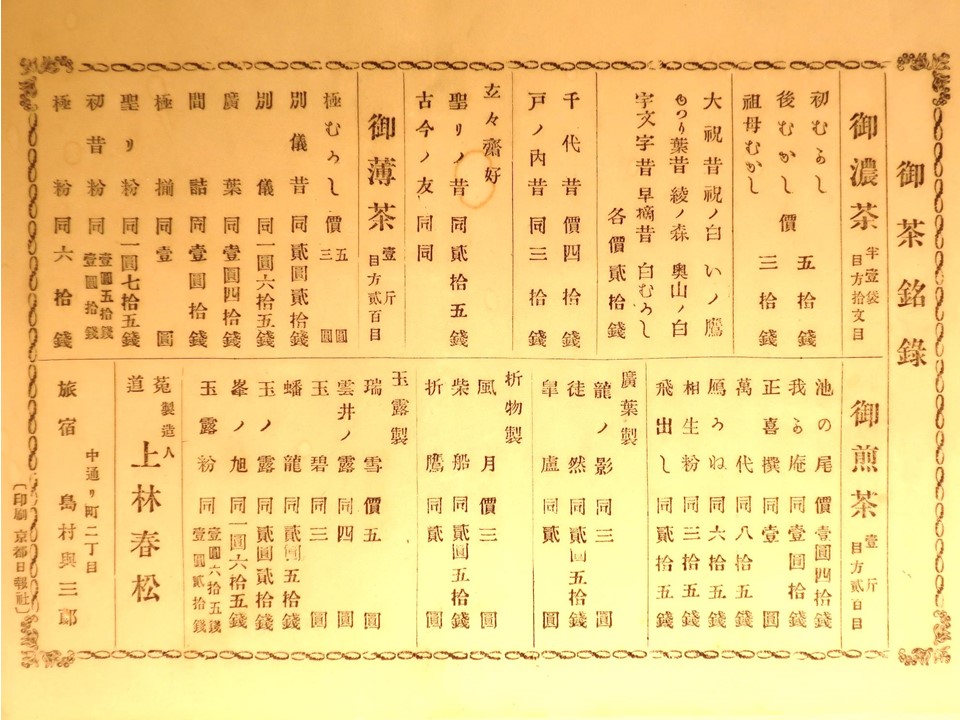 御茶銘錄
御濃茶 半壹袋目方拾文目
初むかし 五拾錢
後むかし 價
祖母むかし 三拾錢
大祝昔 祝ノ白 いノ鷹
もつり葉昔 綾ノ森 奧山ノ白
宇文字昔 早摘昔 白むかし
各價貳拾錢
千代昔 價四拾錢
戸ノ內昔 同三拾錢
玄々齋好
聖リノ昔 同貳拾五錢
古今ノ友 同同
御薄茶 壹斤目方貳百目
極むかし 價 五圓 三圓
別儀昔 同貳圓貳拾錢
別儀 同一圓六拾五錢
廣葉 同壹圓四拾錢
間詰 同壹圓拾錢
極揃 同壹圓
聖リ粉 同一圓七拾五錢
初昔粉 同 壹圓五拾錢 壹圓拾錢
極粉 同六拾錢
御煎茶 壹斤目方貳百目
池の尾 價壹圓四拾錢
我か庵 同壹圓拾錢
正喜撰 同壹圓
萬代 同八拾五錢
鴈かね 同六拾五錢
相生粉 同三拾五錢
飛出し 同貳拾五錢
廣葉製
龍ノ影 同三圓
徒然 同貳圓五拾錢
皐盧 同貳圓
折物製
風月 價三圓
柴船 同貳圓五拾錢
折鷹 同貳圓
玉露製
瑞雪 價五圓
雲井ノ露 同四圓
玉碧 同三圓
蟠龍 同貳圓五拾錢
玉ノ露 同貳圓貳拾錢
峯ノ旭 同一圓六拾五錢
玉露粉 同 壹圓六拾五錢 壹圓貳拾錢
菟道 製造人 上林春松
中通リ町二丁目
旅宿 島村與三郎
〔印刷 京都日報社〕